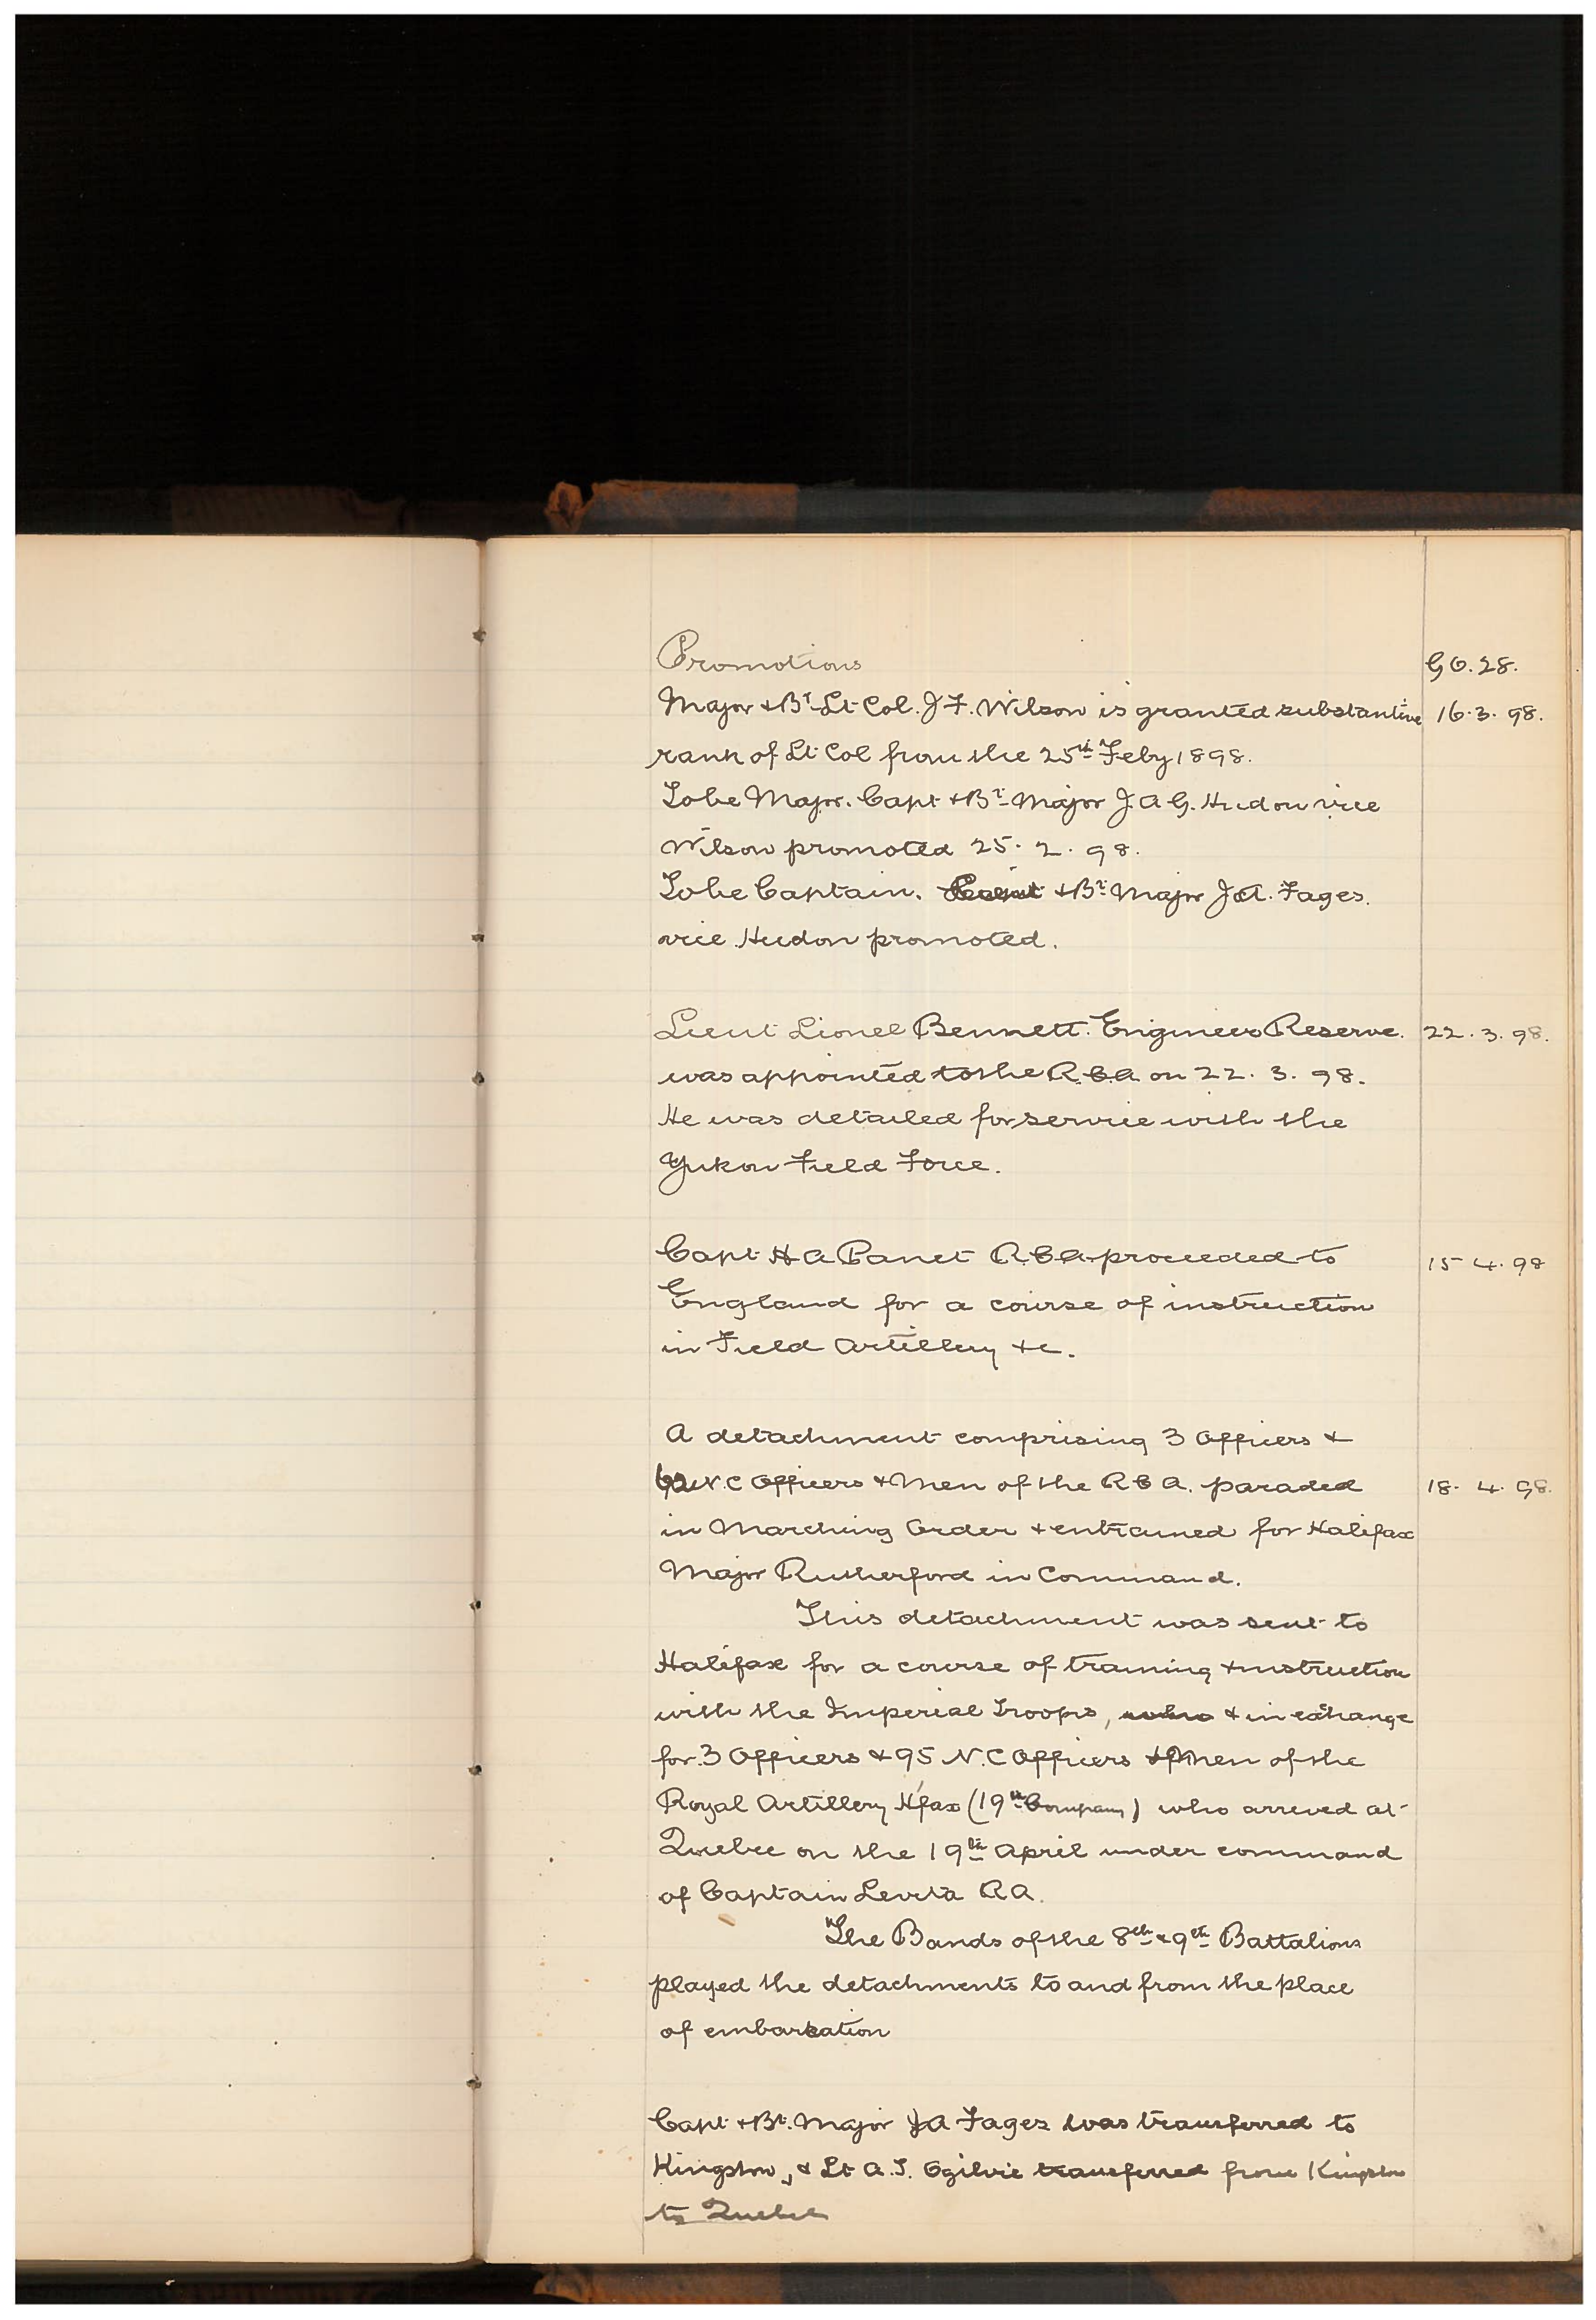 Promotions G O. 28.
Major & Bt Lt Col. J F. Wilson is granted substantive 16. 3. 98.
rank of Lt Col from the 25th Feby 1898.
To be Major. Capt & Bt Major J. A G. Hudon vice
Wilson promoted 25. 2. 98.
To be Captain. & Bt Major J A. Fages.
vice Hudon promoted.
Lieut Lionel Bennett. Engineer Reserve. 22. 3. 98.
was appointed to the R. C A on 22. 3. 98.
He was detailed for service with the
Yukon Field Force.
Capt H A Panet R. C A proceeded to 15 4. 98
England for a course of instruction
in Field Artillery &c.
A detachment comprising 3 Officers &
N. C Officers & Men of the R C A. paraded 18. 4. 98.
in Marching Order & entrained for Halifax
Major Rutherford in Command.
This detachment was sent to
Halifax for a course of training & instruction
with the Imperial Troops, who & in exchange
for 3 Officers & 95 N. C Officers & Men of the
Royal Artillery H'fax (19th Company) who arrived at
Quebec on the 19th April under command
of Captain Levita R A.
The Bands of the 8th & 9th Battalions
played the detachments to and from the place
of embarkation
Capt & Bt. Major J A Fages was transferred to
Kingston, & Lt A. T. Ogilvie transferred from Kingston
to Quebec